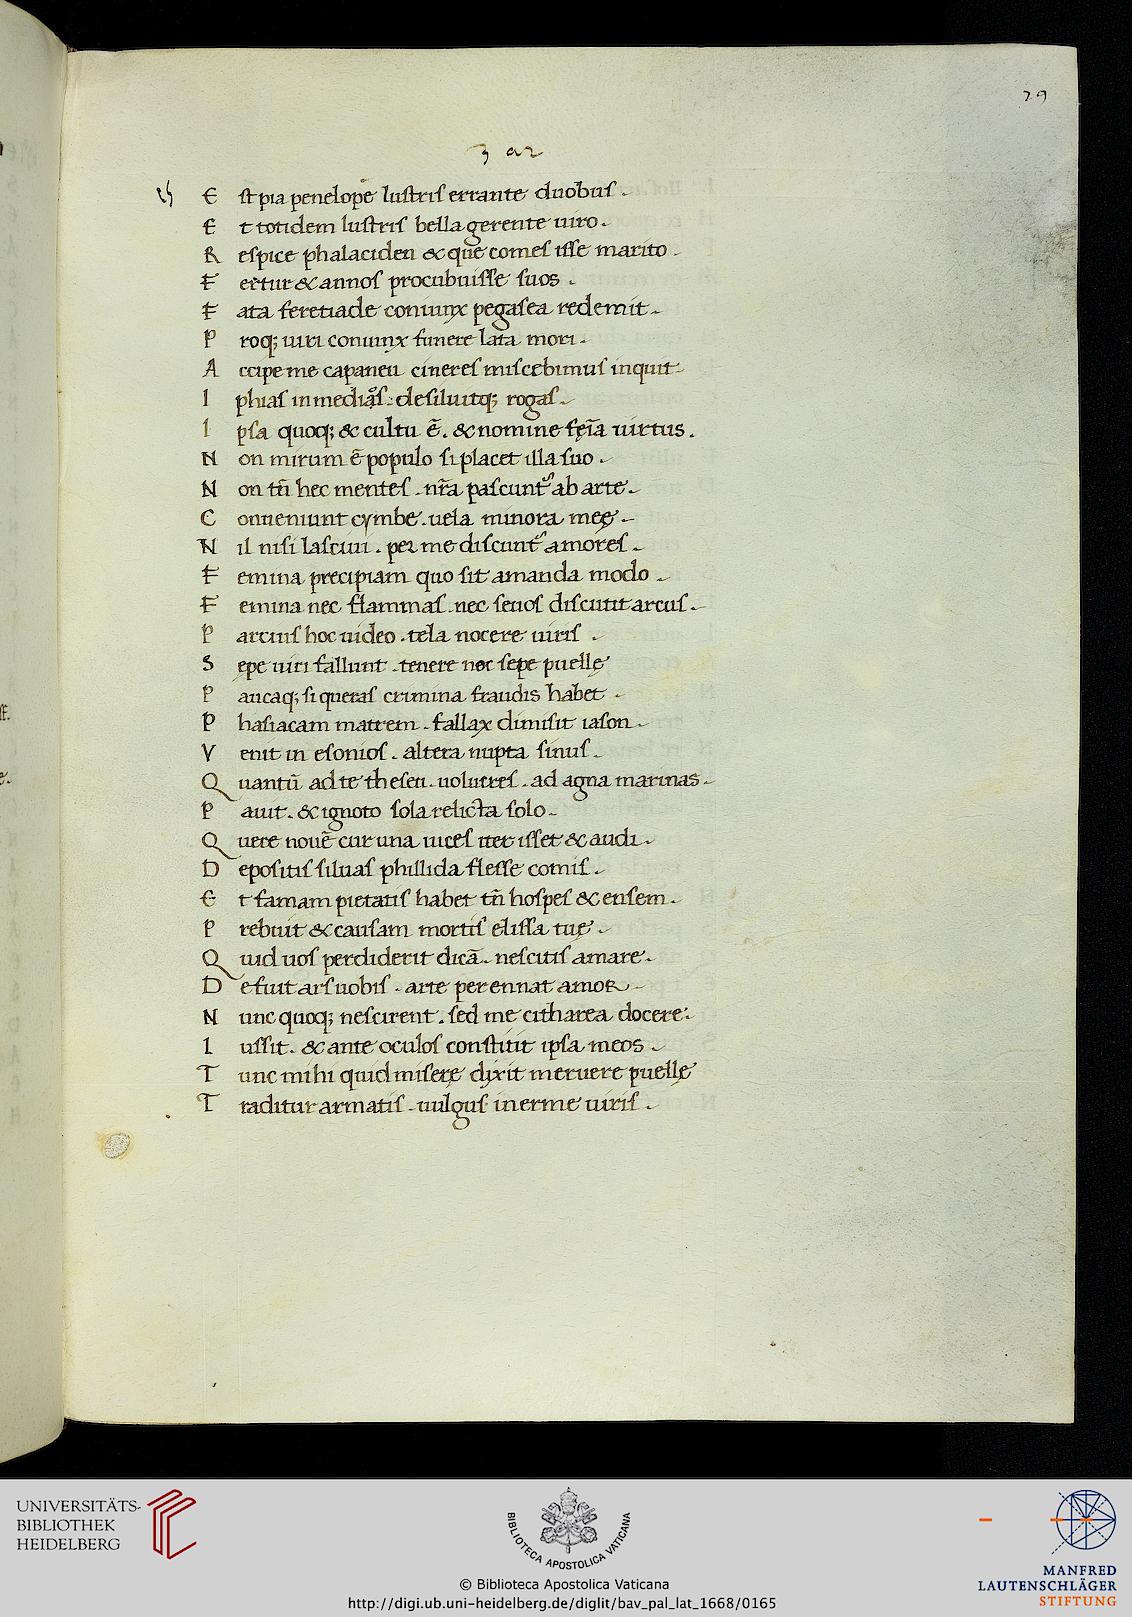 29
3 ar
E st pia penelope lustris errante duobus .
E t totidem lustris bella gerente uiro .
R espice phalaciden & que comes isse marito .
F ertur & annos procubuisse suos .
F ata feretiade coniunx pegasea redemit .
P roq; uiri coniunx funere lata mori .
A ccipe me capaneu cineres miscebimus inquit
I phias in medias . desiluitq; rogas .
I psa quoq; & cultu ē . & nomine fęīa uirtus .
N on mirum ē populo si placet illa suo .
N on tn̄ hec mentes . nr̄a pascunt᷒ ab arte .
C onueniunt cymbe . uela minora meę .
N il nisi lasciui . per me discunt᷒ amores .
F emina precipiam quo sit amanda modo .
F emina nec flammas . nec seuos discutit arcus .
P arcius hoc uideo . tela nocere uiris .
S ępe uiri fallunt . tenere nec sepe puellę
P aucaq; si queras crimina fraudis habet .
P hasiacam matrem . fallax dimisit iason .
V enit in esonios . altera nupta sinus .
Q uantū ad te theseu . uolucres . ad agna marinas .
P auit . & ignoto sola relicta solo .
Q uere nouē cur una uices iter isset & audi .
D epositis siluas phillida flesse comis .
E t famam pietatis habet tn̄ hospes & ensem .
P rebuit & causam mortis elissa tuę .
Q uid uos perdiderit dicā . nescitis amare .
D efuit ars uobis . arte perennat amor .
N unc quoq; nescirent . sed me citharea docere .
I ussit . & ante oculos constitit ipsa meos .
T unc mihi quid miserę dixit meruere puellę
T raditur armatis . uulgus inerme uiris .
UNIVERSITÄTS-
BIBLIOTHEK
HEIDELBERG
BIBLIOTECA APOSTOLICA VATICANA
© Biblioteca Apostolica Vaticana
http://digi.ub.uni-heidelberg.de/diglit/bav_pal_lat_1668/0165
MANFRED
LAUTENSCHLÄGER
STIFTUNG